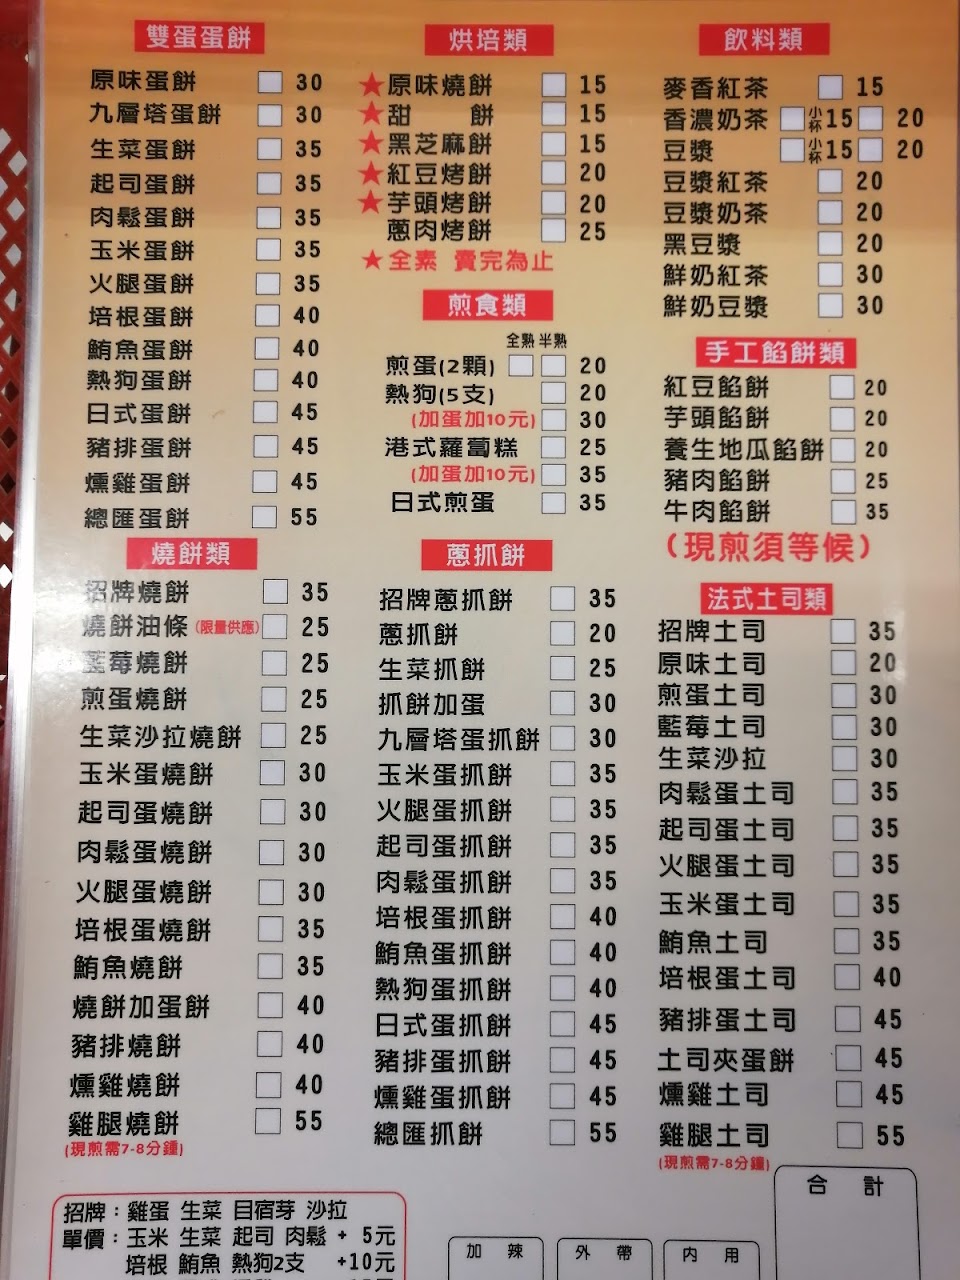 雙蛋蛋餅
原味蛋餅 30
九層塔蛋餅 30
生菜蛋餅 35
起司蛋餅 35
肉鬆蛋餅 35
玉米蛋餅 35
火腿蛋餅 35
培根蛋餅 40
鮪魚蛋餅 40
熱狗蛋餅 40
日式蛋餅 45
豬排蛋餅 45
燻雞蛋餅 45
總匯蛋餅 55
燒餅類
招牌燒餅 35
燒餅油條(限量供應) 25
藍莓燒餅 25
煎蛋燒餅 25
生菜沙拉燒餅 25
玉米蛋燒餅 30
起司蛋燒餅 30
肉鬆蛋燒餅 30
火腿蛋燒餅 30
培根蛋燒餅 35
鮪魚燒餅 35
燒餅加蛋餅 40
豬排燒餅 40
燻雞燒餅 40
雞腿燒餅 55
(現煎需7-8分鐘)
招牌:雞蛋 生菜 目宿芽 沙拉
單價:玉米 生菜 起司 肉鬆 + 5元
培根 鮪魚 熱狗2支 +10元
烘培類
★原味燒餅 15
★甜 餅 15
★黑芝麻餅 15
★紅豆烤餅 20
★芋頭烤餅 20
蔥肉烤餅 25
★全素 賣完為止
煎食類
全熟 半熟
煎蛋(2顆) 20
熱狗(5支) 20
(加蛋加10元) 30
港式蘿蔔糕 25
(加蛋加10元) 35
日式煎蛋 35
蔥抓餅
招牌蔥抓餅 35
蔥抓餅 20
生菜抓餅 25
抓餅加蛋 30
九層塔蛋抓餅 30
玉米蛋抓餅 35
火腿蛋抓餅 35
起司蛋抓餅 35
肉鬆蛋抓餅 35
培根蛋抓餅 40
鮪魚蛋抓餅 40
熱狗蛋抓餅 40
日式蛋抓餅 45
豬排蛋抓餅 45
燻雞蛋抓餅 45
總匯抓餅 55
飲料類
麥香紅茶 15
香濃奶茶 小杯15 20
豆漿 小杯15 20
豆漿紅茶 20
豆漿奶茶 20
黑豆漿 20
鮮奶紅茶 30
鮮奶豆漿 30
手工餡餅類
紅豆餡餅 20
芋頭餡餅 20
養生地瓜餡餅 20
豬肉餡餅 25
牛肉餡餅 35
(現煎須等候)
法式土司類
招牌土司 35
原味土司 20
煎蛋土司 30
藍莓土司 30
生菜沙拉 30
肉鬆蛋土司 35
起司蛋土司 35
火腿蛋土司 35
玉米蛋土司 35
鮪魚土司 35
培根蛋土司 40
豬排蛋土司 45
土司夾蛋餅 45
燻雞土司 45
雞腿土司 55
(現煎需7-8分鐘)
合 計
加 辣
外 帶
內 用